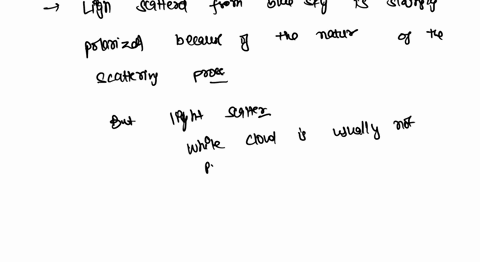 → Light scattered from blue sky is strongly
polarized because of the nature of the
scattering proces
But light scatter
white cloud is usually not
p